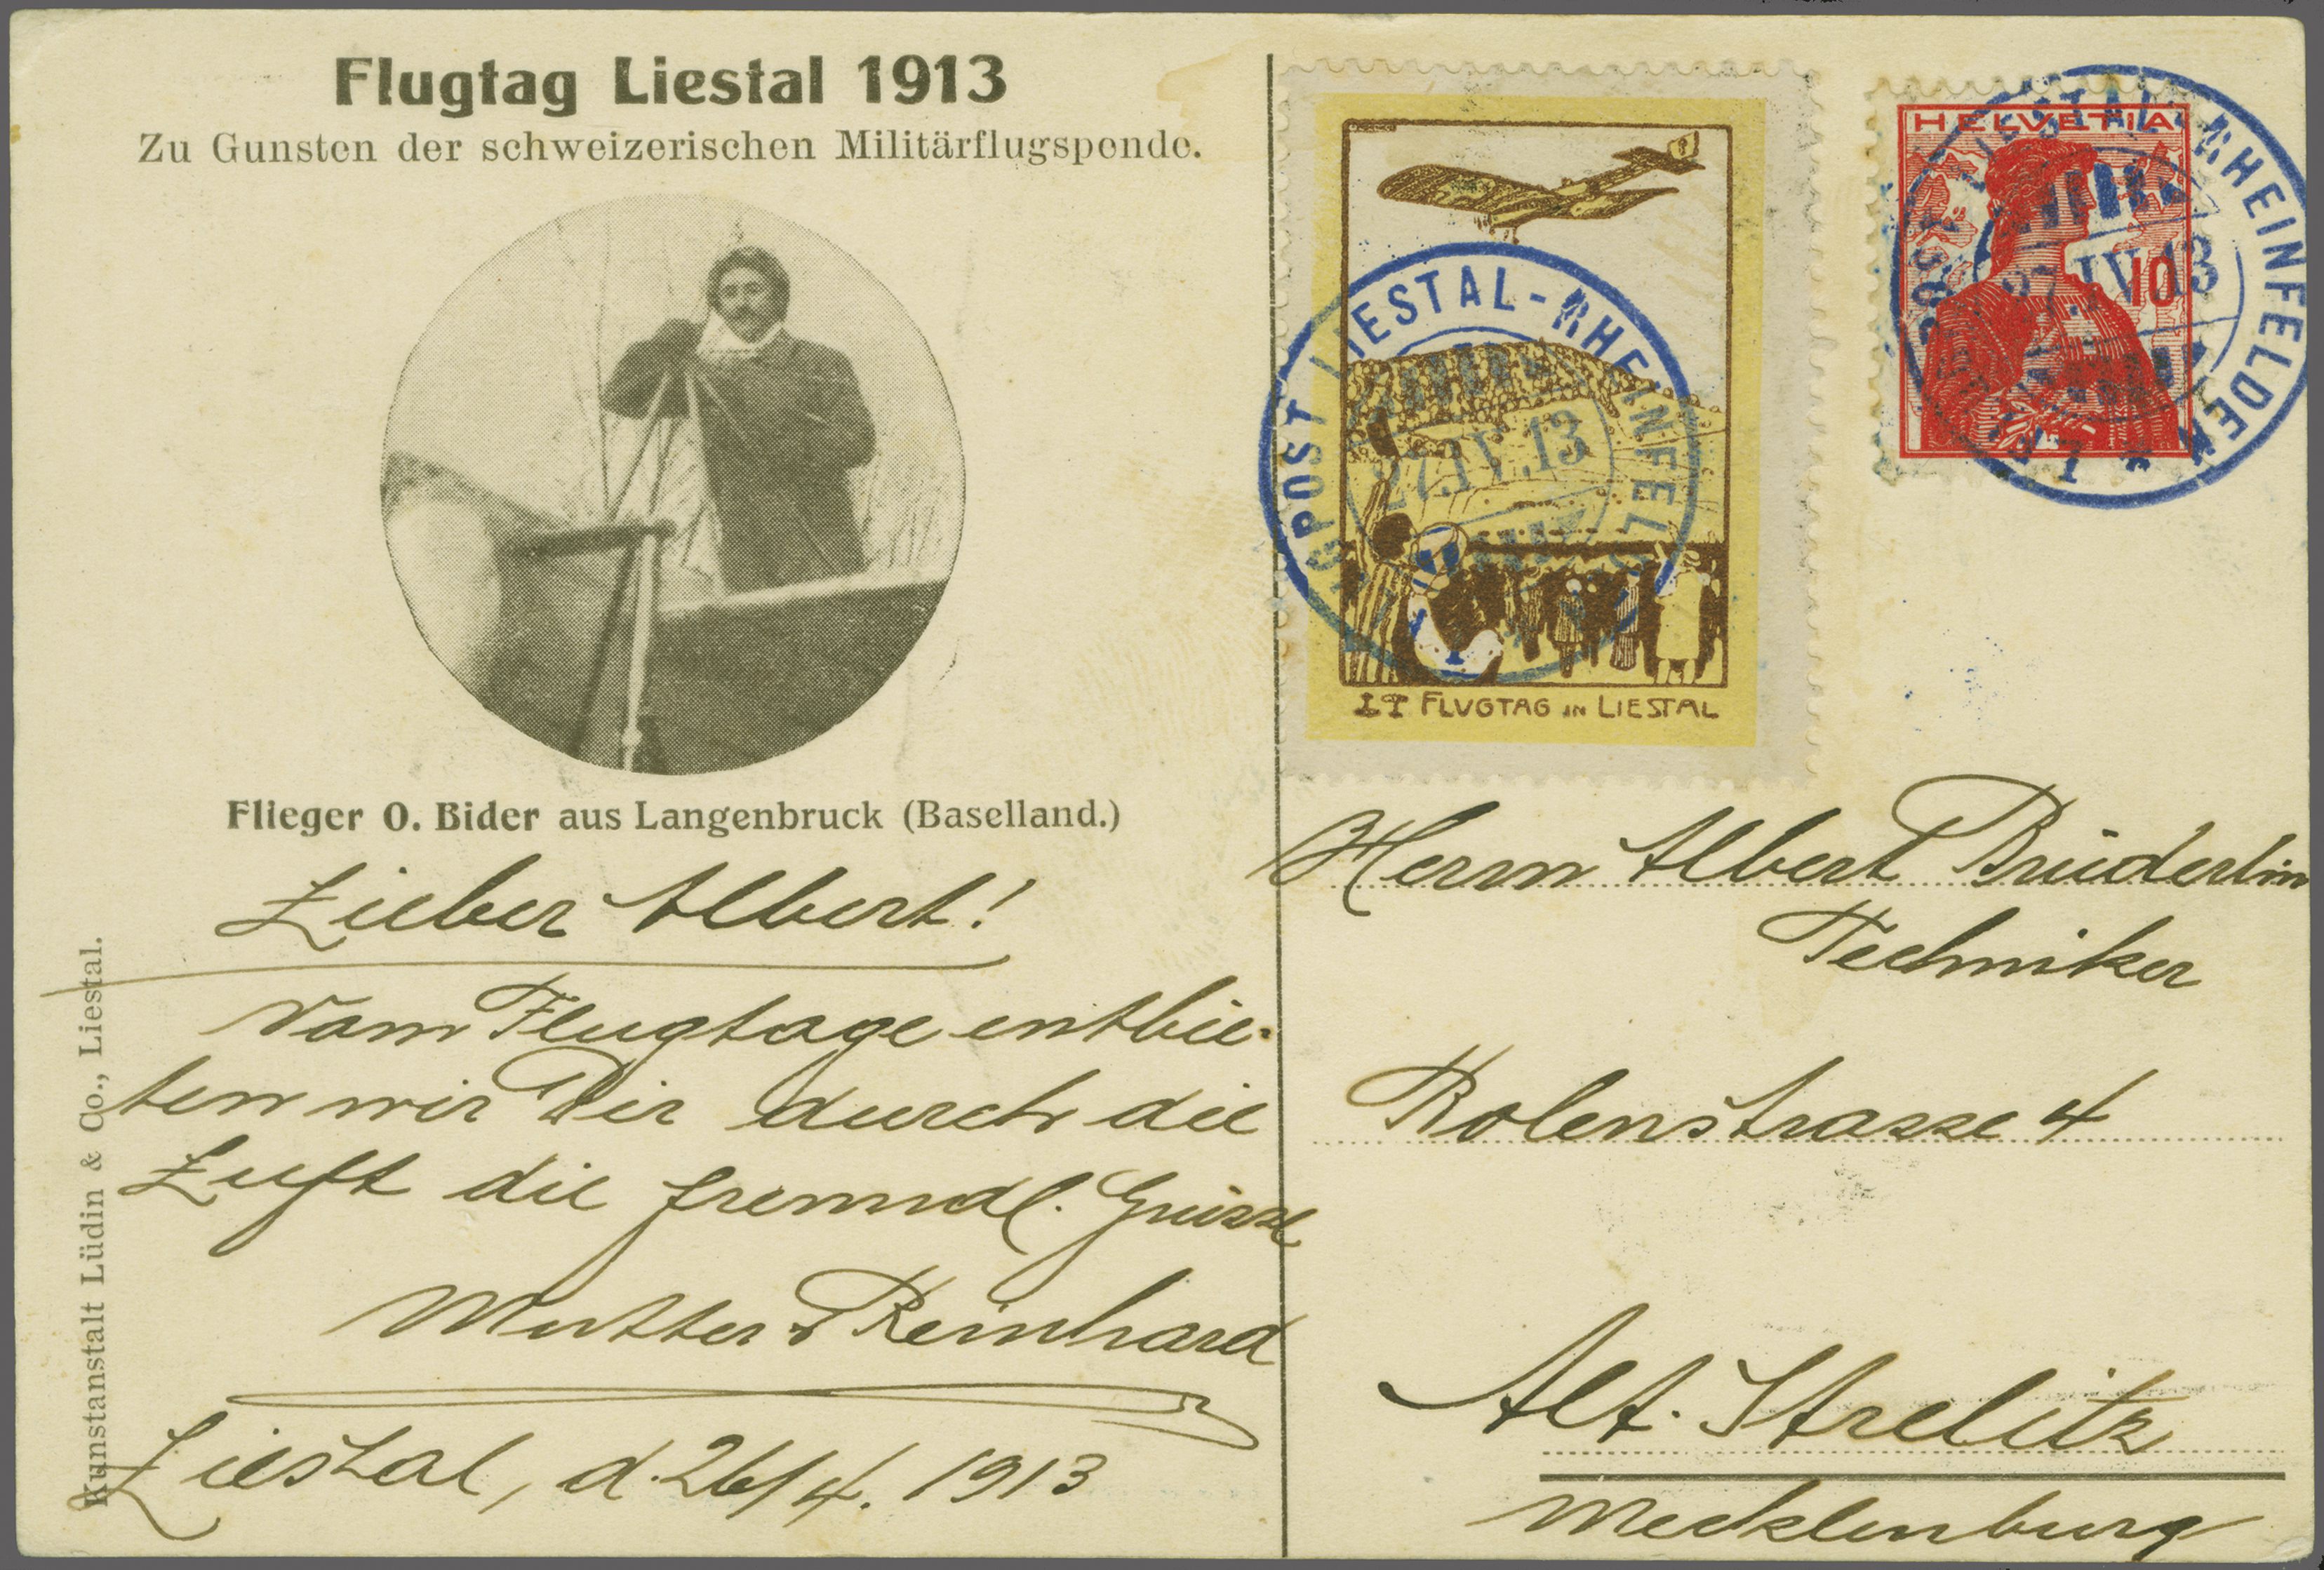 Flugtag Liestal 1913
Zu Gunsten der schweizerischen Militärflugspende.
Flieger O. Bider aus Langenbruck (Baselland.)
Lieber Albert!
Vom Flugtage entbie-
ten wir Dir durch die
Luft die freundl. Grüsse
Mutter & Reinhard
Liestal, d. 26/4. 1913
Kunstanstalt Lüdin & Co., Liestal.
FLUGTAG IN LIESTAL
GPOST LIESTAL-RHEINFEL
27.IV.13
HELVETIA
10
POST LIESTAL-RHEINFELDEN
27.IV.13
Herrn Albert Brüderlin
Techniker
Rolenstrasse 4
Alt-Strelitz
Mecklenburg